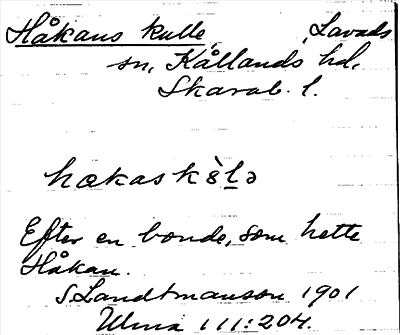 Håkans kulle, Lavads
sn, Kållands hd,
Skarab. l.
hækask
Efter en bonde, som hette
Håkan.
S. Landtmanson 1901
111:204.